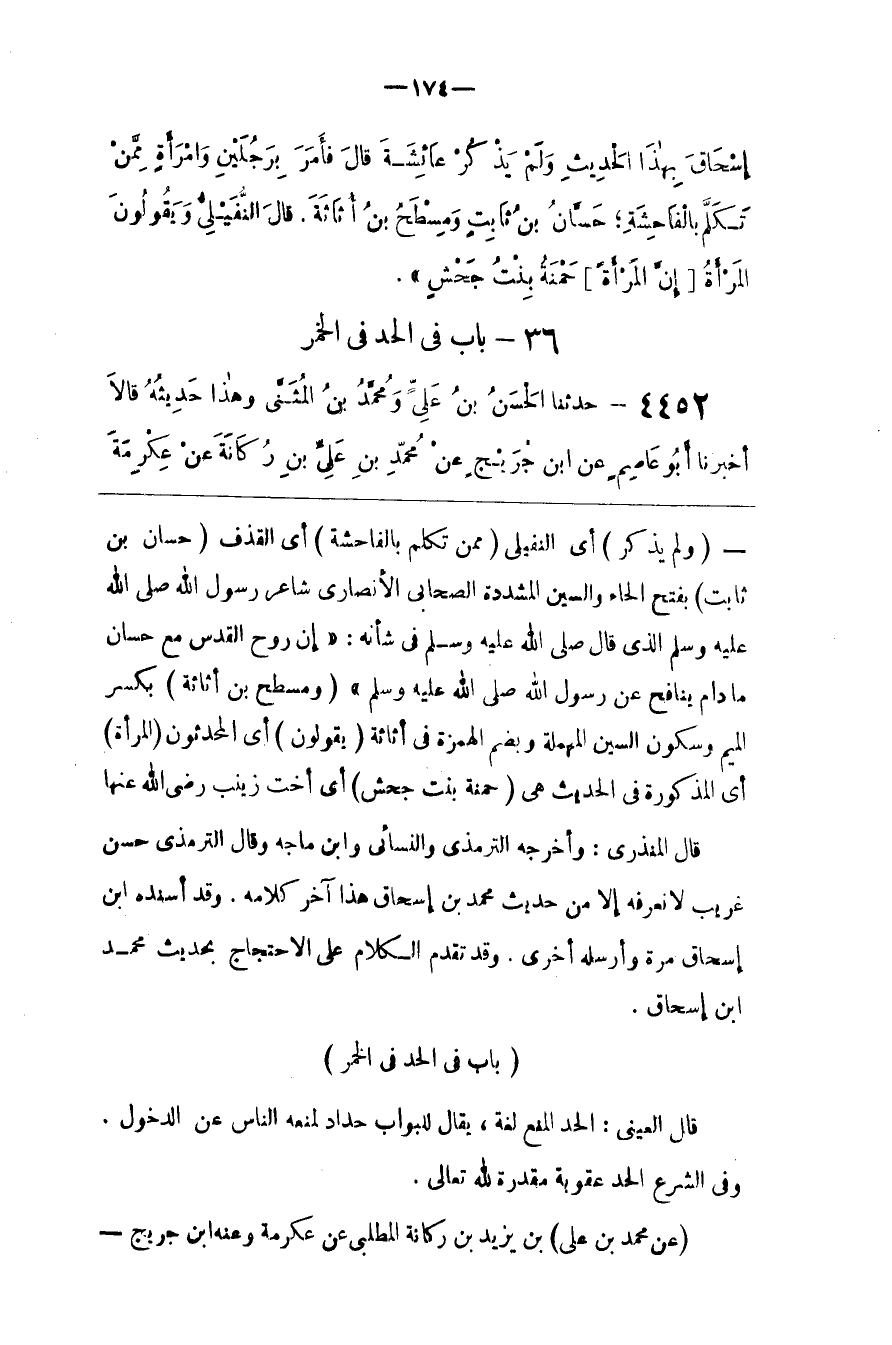 —١٧٤—
إِسْحَاقَ بِهٰذَا الْحَدِيثِ وَلَمْ يَذْكُرْ عَائِشَةَ قالَ فأَمَرَ بِرَجُلَيْنِ وَامْرَأَةٍ مِمَّنْ
تَكَلَّمَ بالْفَاحِشَةِ؛ حَسَّانُ بنُ ثابِتٍ وَمِسْطَحُ بنُ أُثَاثَةَ . قالَ النُّفَيْلِيُّ وَيَقُولُونَ
المَرْأَةُ [ إِنَّ المَرْأَةَ ] حَمْنَةُ بِنْتُ جَحْشٍ » .
٣٦ — باب فى الحد فى الخمر
٤٤٥٢ — حدثنا الْحَسَنُ بنُ عَلِيٍّ وَمُحَمَّدُ بنُ المُثَنَّى وهٰذا حَدِيثُهُ قالاَ
أخبرنا أَبُو عَاصِمٍ عن ابن جُرَيْجٍ عنْ مُحمّدِ بنِ عَلِيِّ بنِ رُكَانَةَ عنْ عِكْرِمَةَ
— ( ولم يذكر ) أى النفيلى ( ممن تكلم بالفاحشة ) أى القذف ( حسان بن
ثابت ) بفتح الحاء والسين المشددة الصحابى الأنصارى شاعر رسول الله صلى الله
عليه وسلم الذى قال صلى الله عليه وسلم فى شأنه : « إن روح القدس مع حسان
ما دام ينافح عن رسول الله صلى الله عليه وسلم » ( ومسطح بن أثاثة ) بكسر
الميم وسكون السين المهملة وبضم الهمزة فى أثاثة ( يقولون ) أى المحدثون (المرأة)
أى المذكورة فى الحديث هى ( حمنة بنت جحش ) أى أخت زينب رضى الله عنها
قال المنذرى : وأخرجه الترمذى والنسائى وابن ماجه وقال الترمذى حسن
غريب لا نعرفه إلا من حديث محمد بن إسحاق هذا آخر كلامه . وقد أسنده ابن
إسحاق مرة وأرسله أخرى . وقد تقدم الكلام على الاحتجاج بحديث محمد
ابن إسحاق .
( باب فى الحد فى الخمر )
قال العينى : الحد المنع لغة ، يقال للبواب حداد لمنعه الناس عن الدخول .
وفى الشرع الحد عقوبة مقدرة لله تعالى .
(عن محمد بن على) بن يزيد بن ركانة المطلبى عن عكرمة وعنه ابن جريج —